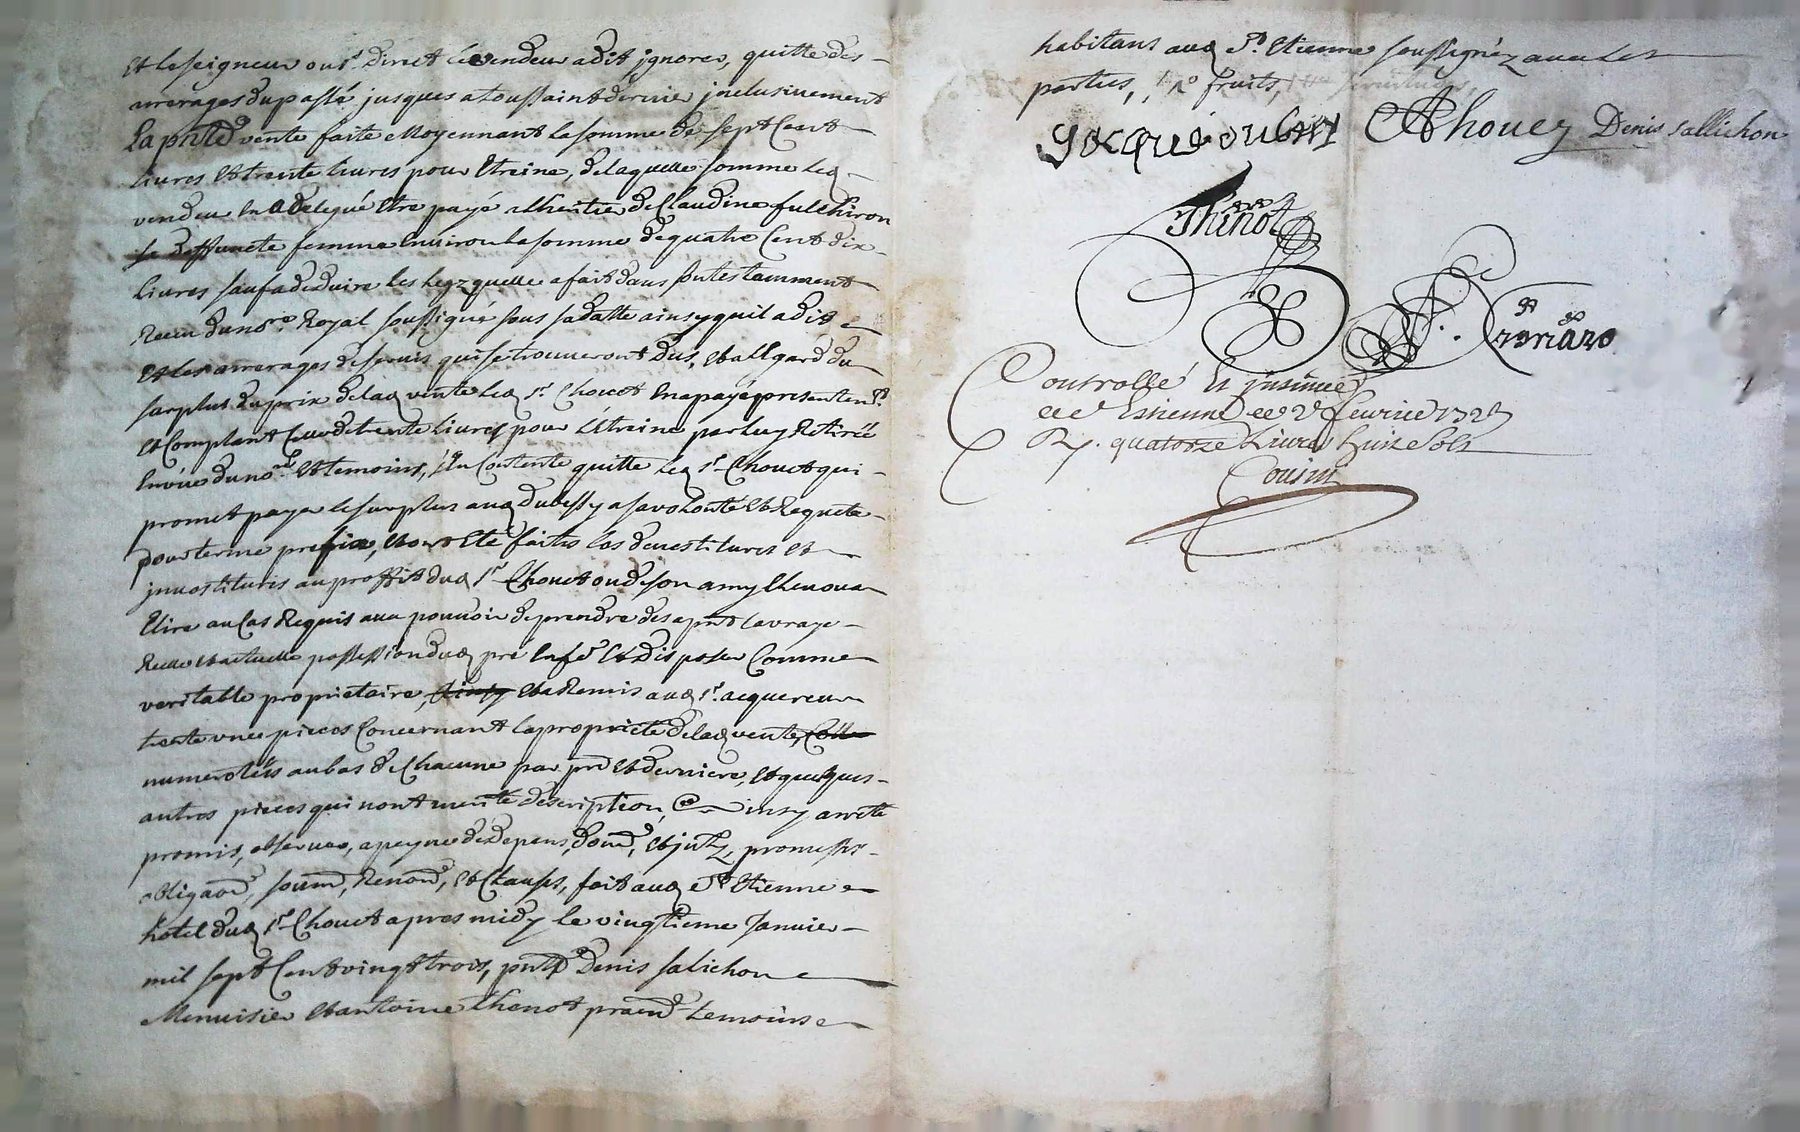 et le seigneur ou sr. direct le vendeur a dit ignorer, quitte des
arrerages du passé jusques a toussaint dernier inclusivement
La pnte vente faite moyennant la somme de sept cent
livres et trente livres pour etreine, de laquelle somme led
vendeur en a delegué etre payé a lheritier de Claudine fulchiron
sa deffuncte femme environ la somme de quatre cent dix
livres sauf a deduire les legz quelle a fait dans son testamment
Receu du nore. Royal soussigné sous sa datte ainsy quil a dit
et les arrerages de servis qui se trouveront dus, et a legard du
surplus du prix de lad vente led sr. Chouet en a payé presentemt.
et comptant celle de trente livres pour l'étreine par luy Retirée
en vüe du nore. et temoins, s'en contente quitte led sr. Chouet qui
promet payer le surplus aud Dubessy a sa volonté et Requete
pour terme prefix, et ont eté faites les devestitures et
investitures au proffit dud sr. Chouet ou de son amy
Elire au cas Requis avec pouvoir de prendre des a pnt la vraye
Reelle et actuelle possession dud pré en fer et disposer comme
veritable proprietaire, et a Remis aud sr. acquereur
trente une pieces concernant la proprieté de lad vente,
numerotées au bas de chacune par pre et derniere, et quelques
autres pieces qui nont merité description, ainsy arreté
promis, observer, a peyne de depens, dom, et intz, promesses
obligaon, soum, Renon, et clauses, fait aud St Etienne
hotel dud sr. Chouet apres midy le vingtieme Janvier
mil sept cent vingt trois, pnts Denis salichon
Menuisier et antoine thenot praen temoins
habitans aud St. Etienne soussignéz avec les
parties, fruits,
Chouet Denis sallichon
Thinot
Controllé et insinué
a St Estienne le 2e fevrier 1723
R. quatorze livres huit sols
Cousin